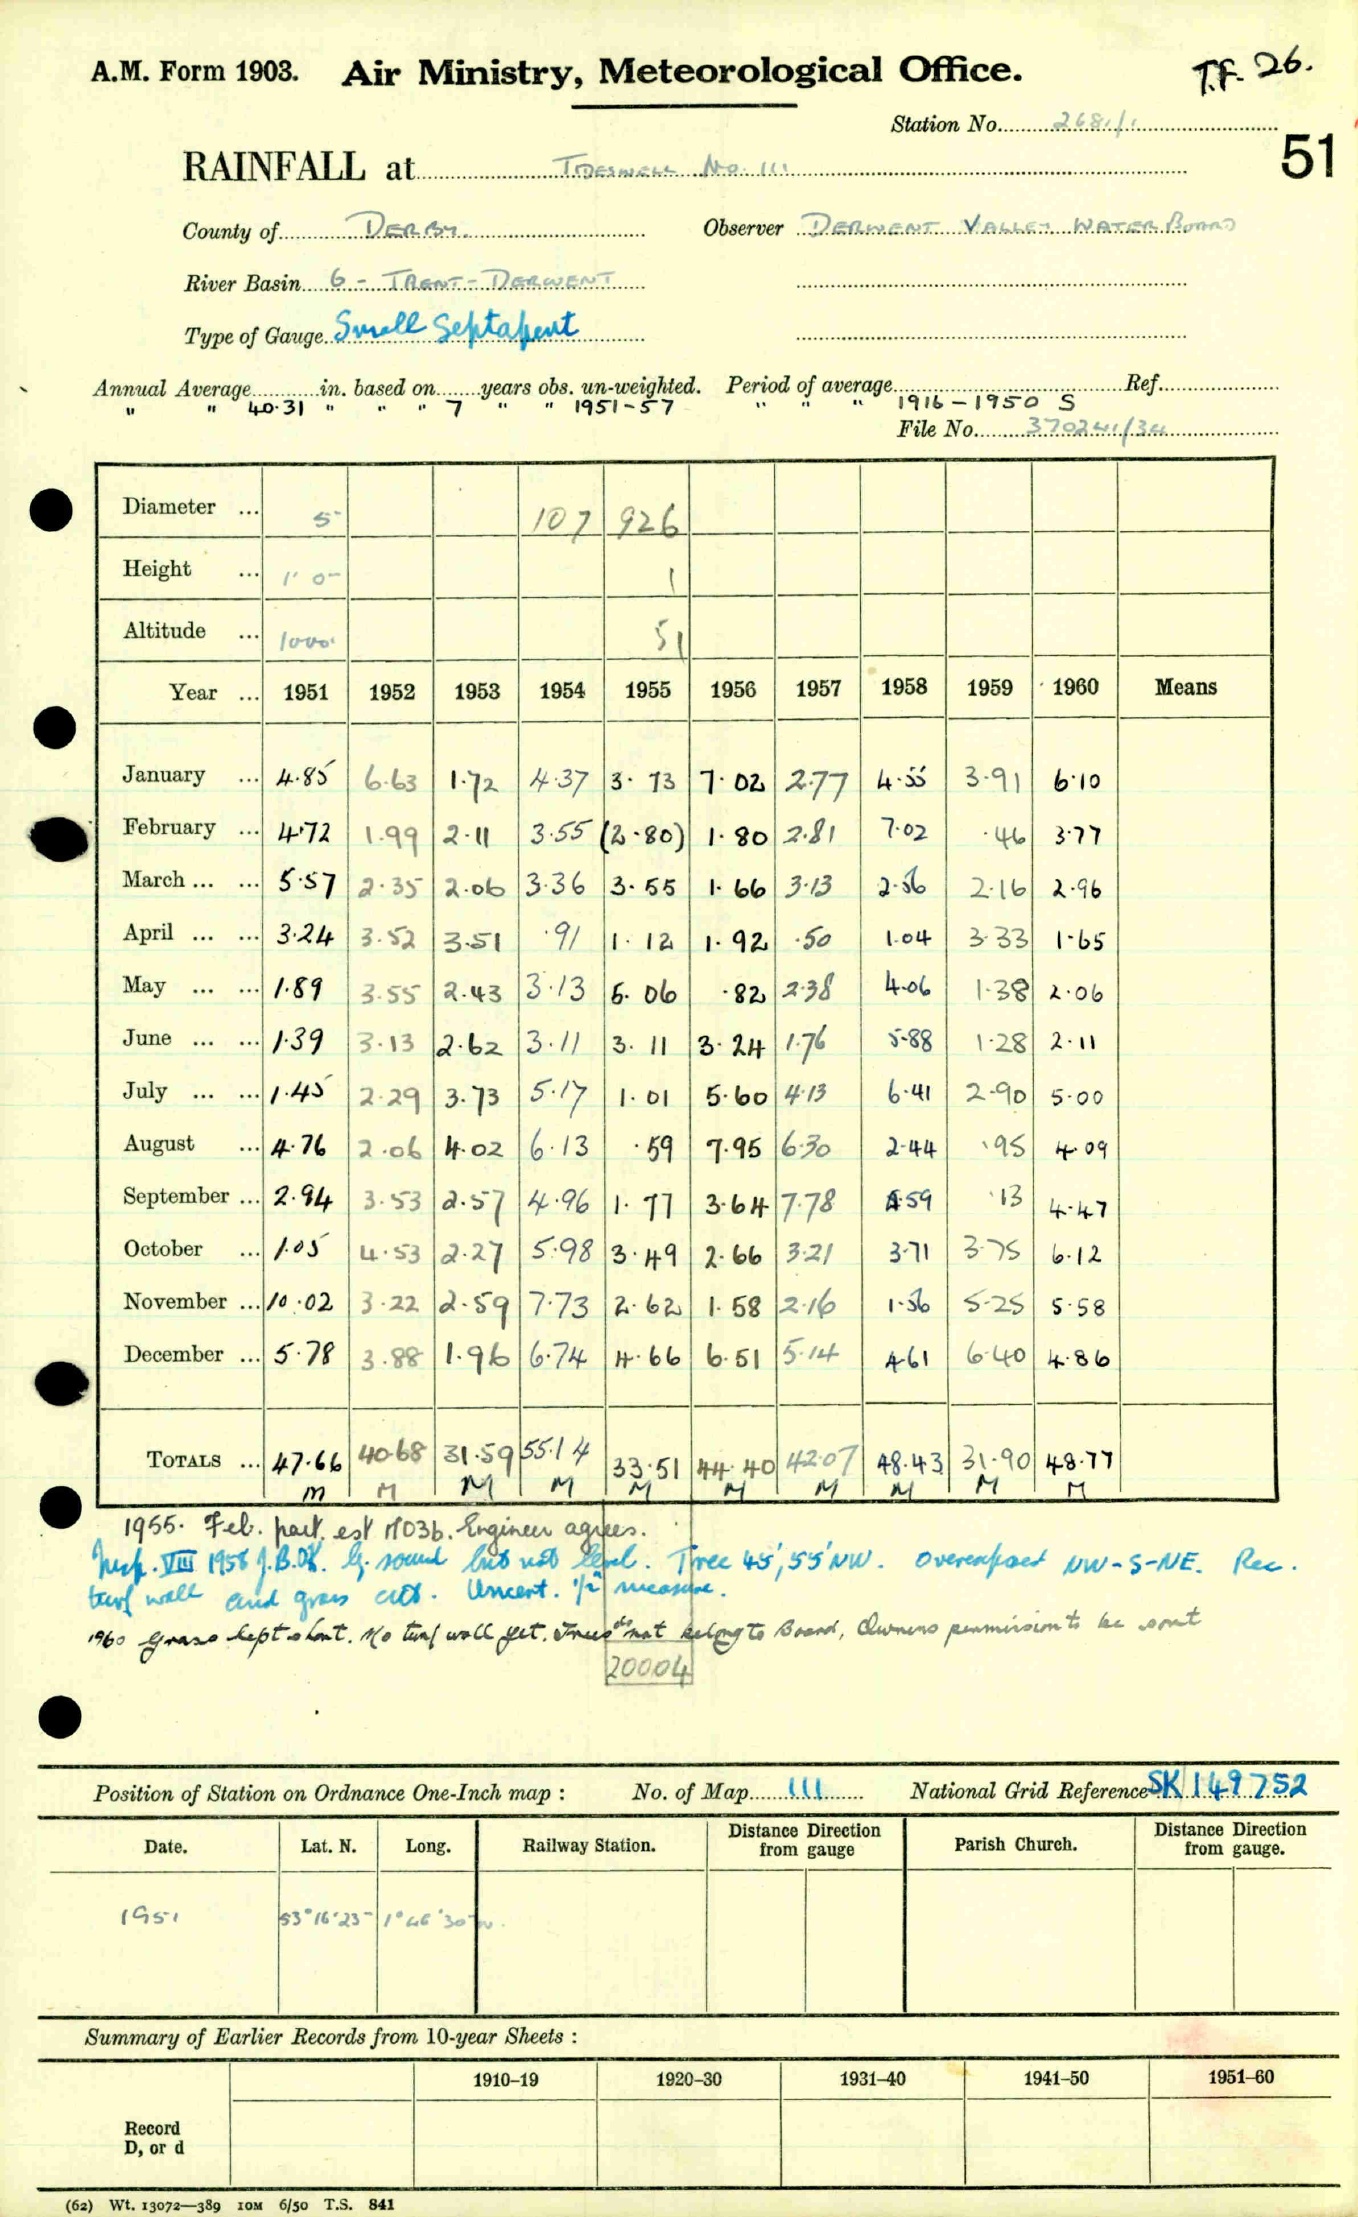 A.M. Form 1903. Air Ministry, Meteorological Office. T.F. 26.
Station No. 2681/1
51
RAINFALL at TIDESWELL No. 111
County of DERBY. Observer DERWENT VALLEY WATER BOARD
River Basin 6 - TRENT - DERWENT
Type of Gauge Small Septapent
Annual Average in. based on years obs. un-weighted. Period of average Ref.
" " 40.31 " " " 7 " " 1951-57 " " " 1916-1950 S
File No. 370241/34
Diameter ... 5 107 926
Height ... 1' 0" 1
Altitude ... 1000' 51
Year ... 1951 1952 1953 1954 1955 1956 1957 1958 1959 1960 Means
January ... 4.85 6.63 1.72 4.37 3.73 7.02 2.77 4.55 3.91 6.10
February ... 4.72 1.99 2.11 3.55 (2.80) 1.80 2.81 7.02 .46 3.77
March ... ... 5.57 2.35 2.06 3.36 3.55 1.66 3.13 2.56 2.16 2.96
April ... ... 3.24 3.52 3.51 .91 1.12 1.92 .50 1.04 3.33 1.65
May ... ... 1.89 3.55 2.43 3.13 5.06 .82 2.38 4.06 1.38 2.06
June ... ... 1.39 3.13 2.62 3.11 3.11 3.24 1.76 5.88 1.28 2.11
July ... ... 1.45 2.29 3.73 5.17 1.01 5.60 4.13 6.41 2.90 5.00
August ... 4.76 2.06 4.02 6.13 .59 7.95 6.30 2.44 .95 4.09
September ... 2.94 3.53 2.57 4.96 1.77 3.64 7.78 4.59 .13 4.47
October ... 1.05 4.53 2.27 5.98 3.49 2.66 3.21 3.71 3.75 6.12
November ... 10.02 3.22 2.59 7.73 2.62 1.58 2.16 1.56 5.25 5.58
December ... 5.78 3.88 1.96 6.74 4.66 6.51 5.14 4.61 6.40 4.86
TOTALS ... 47.66 40.68 31.59 55.14 33.51 44.40 42.07 48.43 31.90 48.77
M M M M M M M M M M
1955. Feb. part. est M03b. Engineer agrees.
Insp. VIII 1956 J.B. G. sound but not level. Tree 45', 55' NW. Overexposed NW-S-NE. Rec.
turf wall and grass cut. Uncert. 1/2" measure.
1960 Grass kept short. No turf wall yet. Trees do not belong to Board, Owners permission to be sort
20004
Position of Station on Ordnance One-Inch map : No. of Map 111 National Grid Reference SK 149752
Date. Lat. N. Long. Railway Station. Distance from gauge Direction Parish Church. Distance from gauge. Direction
1951 53° 16' 23" 1° 46' 30" W.
Summary of Earlier Records from 10-year Sheets :
1910–19 1920–30 1931–40 1941–50 1951–60
Record
D, or d
(62) Wt. 13072—389 10M 6/50 T.S. 841